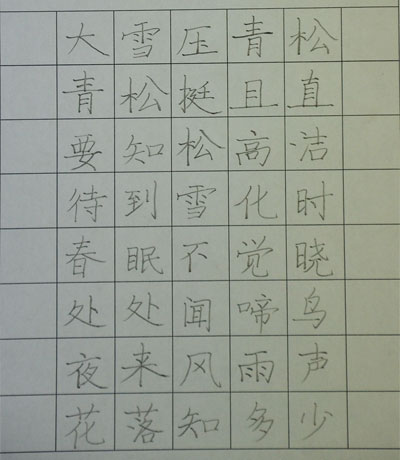 大雪压青松
青松挺且直
要知松高洁
待到雪化时
春眠不觉晓
处处闻啼鸟
夜来风雨声
花落知多少